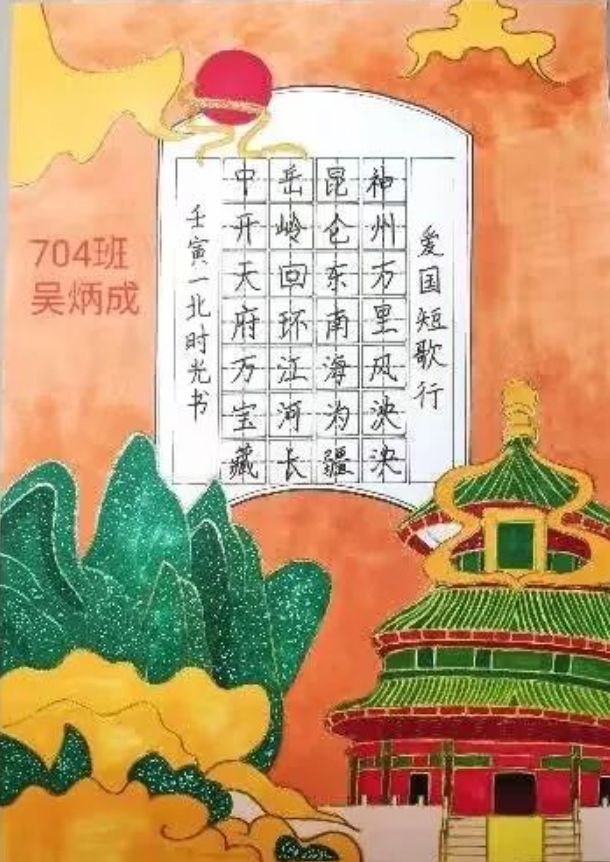 爱国短歌行
神州万里风泱泱
昆仑东南海为疆
岳岭回环江河长
中开天府万宝藏
壬寅一北时光书
704班
吴炳成